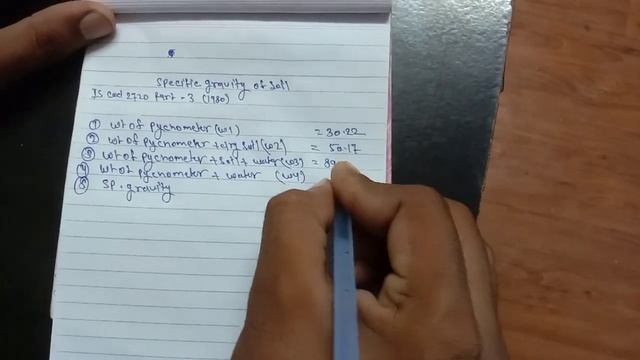 specific gravity of soil
IS cod 2720 Part - 3 (1980)
① wt of pycnometer (w1) = 30.22
② wt of pycnometer + dry soil (w2) = 50.17
③ wt of pycnometer + soil + water (w3) = 89
④ wt of pycnometer + water (w4)
⑤ SP. gravity